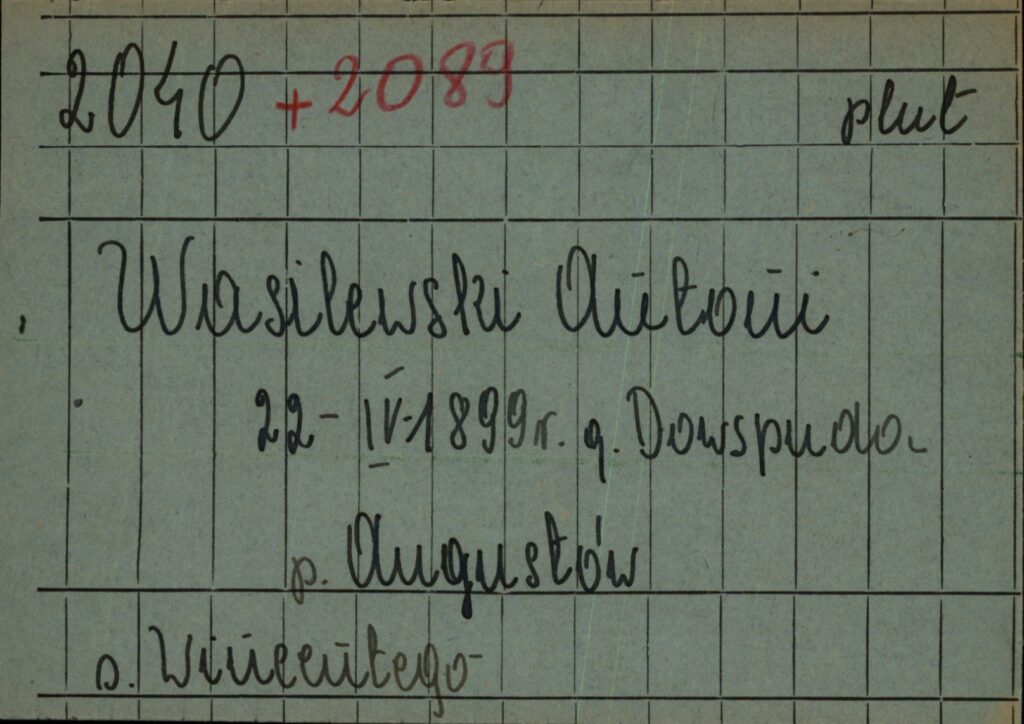 2040 + 2089 plut
Wasilewski Antoni
22-IV-1899r. g. Dowspuda
p. Augustów
s. Wincentego